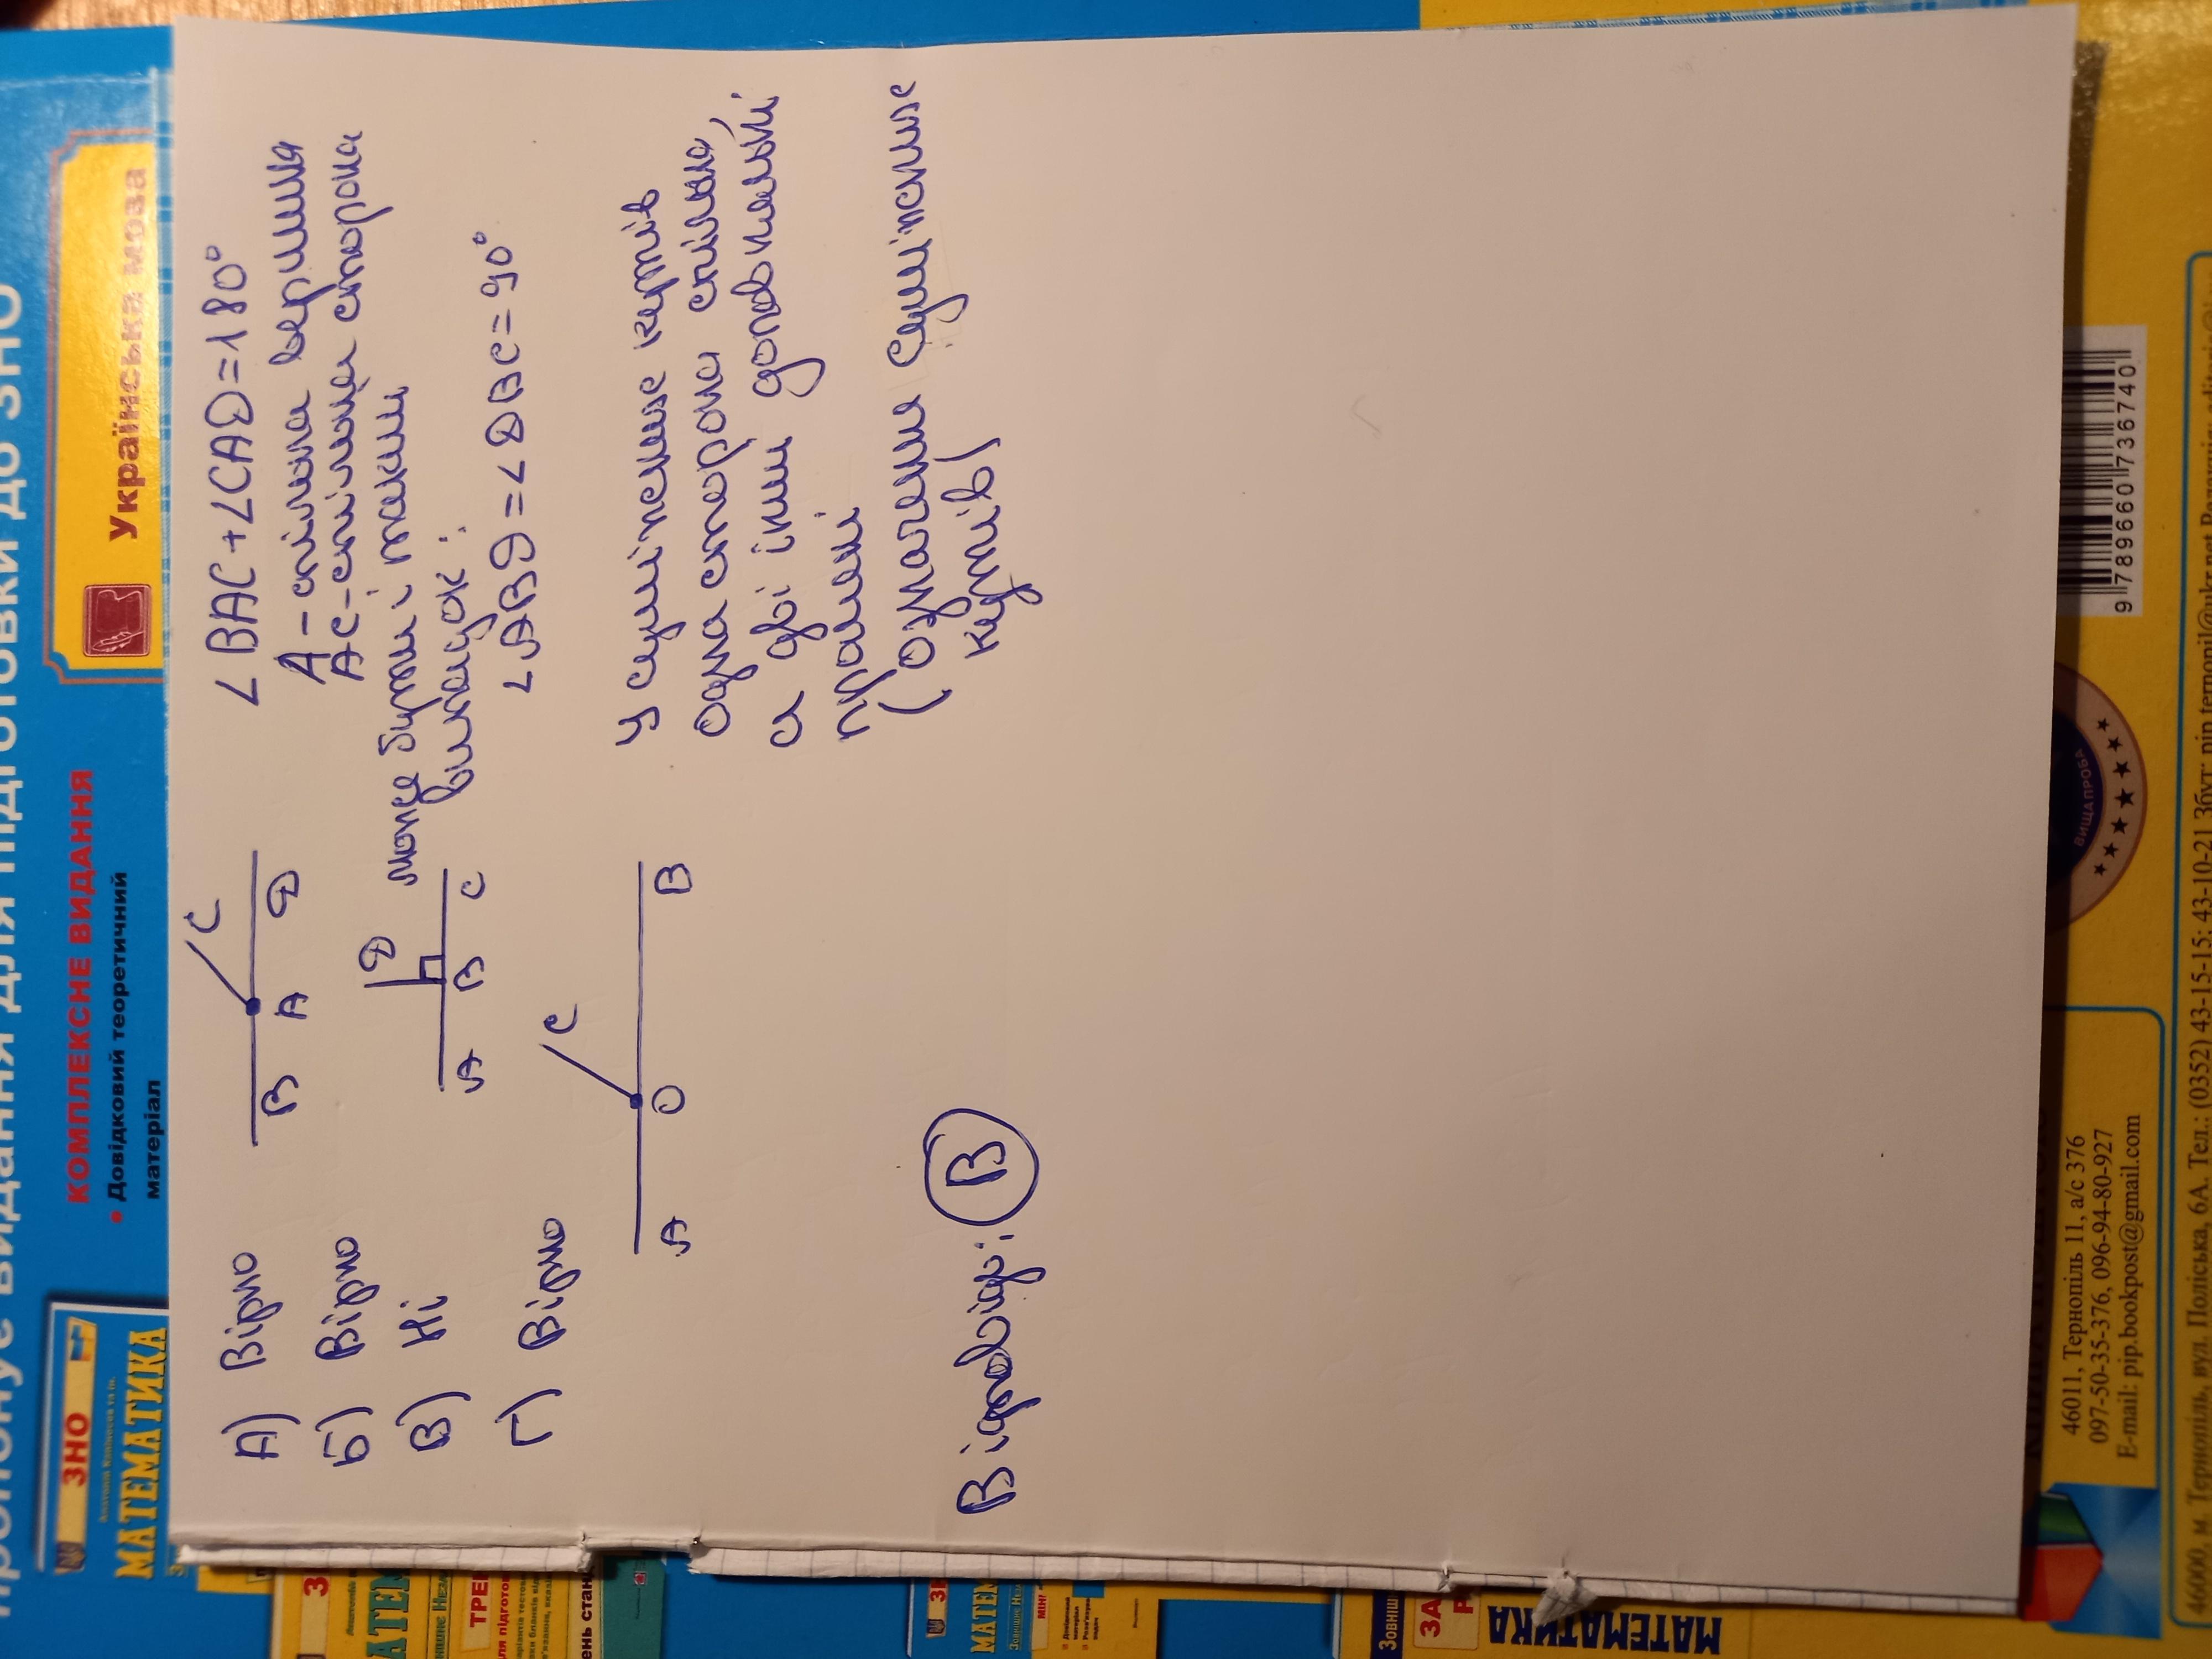 А) Вірно
B A D C
∠BAC+∠CAD=180°
A - спільна вершина
Б) Вірно
AC - спільна сторона
В) Ні
A B C D
може бути і такий
випадок:
∠ABD=∠DBC=90°
Г) Вірно
A O B C
У суміжних кутів
одна сторона спільна,
а дві інші доповняльні
промені
(Означення Суміжних
кутів)
Відповідь: В
пропонує видання для підготовки до ЗНО
КОМПЛЕКСНЕ ВИДАННЯ
• Довідковий теоретичний
матеріал
Українська мова
ЗНО
МАТЕМАТИКА
МАТЕМАТИКА
ВИЩА ПРОБА
9 789660 736740
46011, Тернопіль 11, а/с 376
097-50-35-376, 096-94-80-927
E-mail: pip.bookpost@gmail.com
46000, м. Тернопіль, вул. Поліська, 6А. Тел.: (0352) 43-15-15; 43-10-21